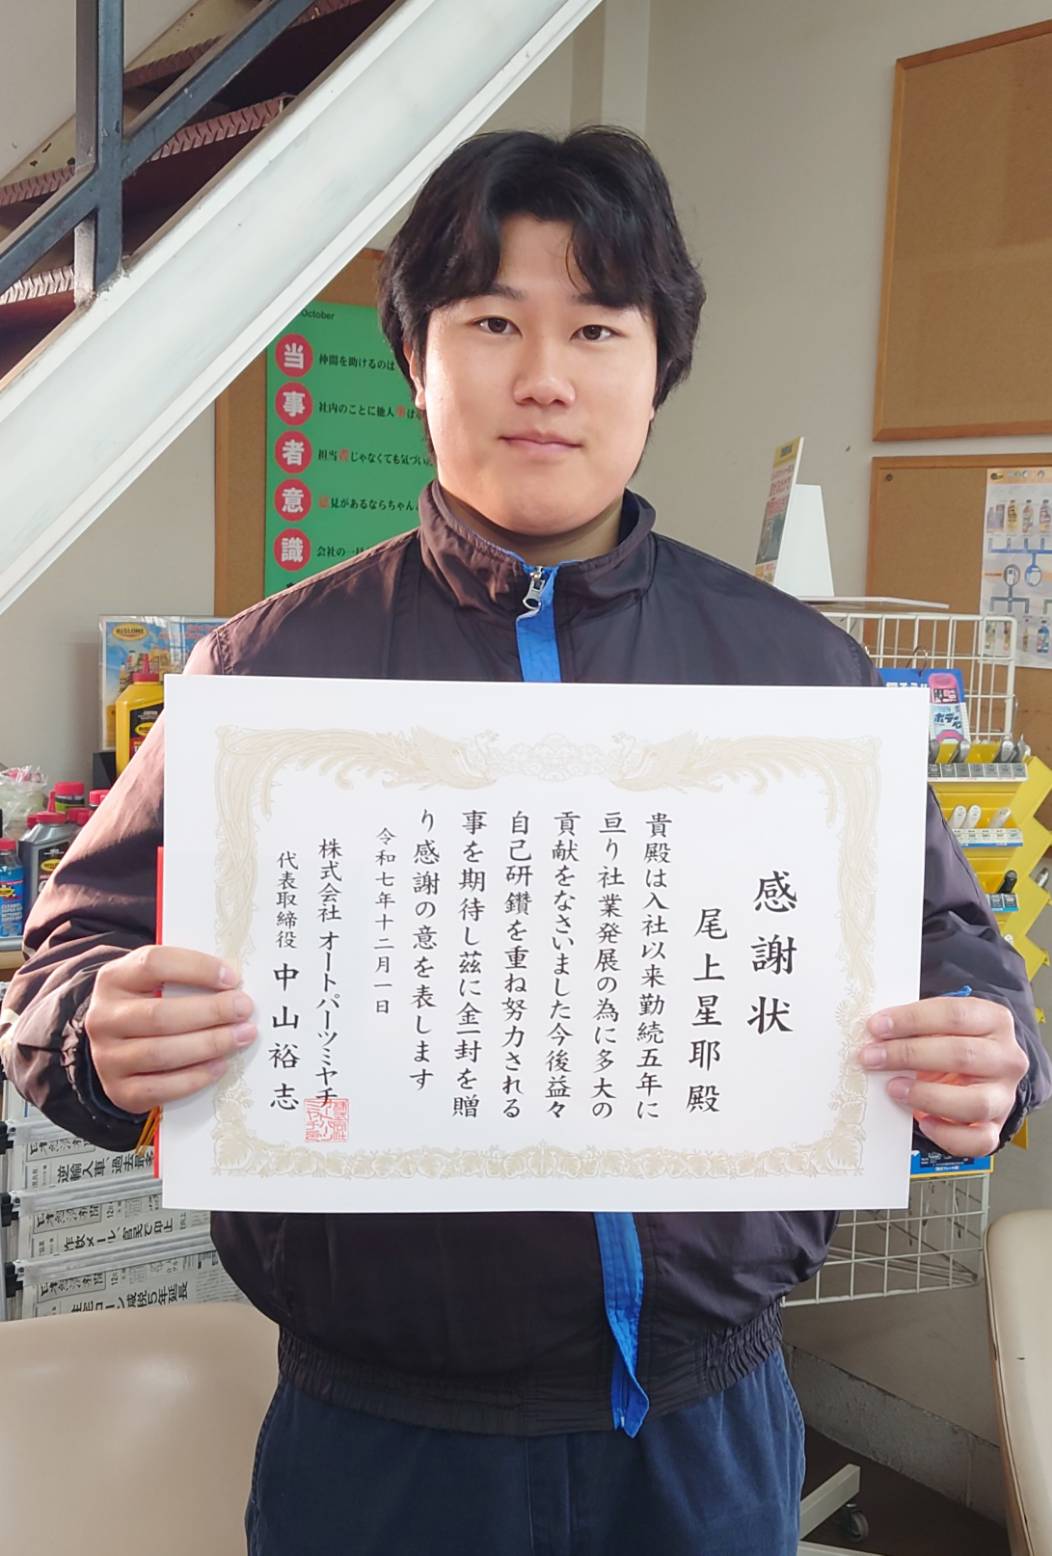 感謝状
尾上星耶殿
貴殿は入社以来勤続五年に
亘り社業発展の為に多大の
貢献をなさいました今後益々
自己研鑽を重ね努力される
事を期待し茲に金一封を贈
り感謝の意を表します
令和七年十二月一日
株式会社 オートパーツミヤチ
代表取締役 中山裕志
October
当事者意識
仲間を助けるのは
社内のことに他人事は
担当者じゃなくても気づい
意見があるならちゃん
会社の一
RISLONE
ボデ
逆輸入車、過去最
詐欺メール、官民で阻止
住宅ローン減税5年延長